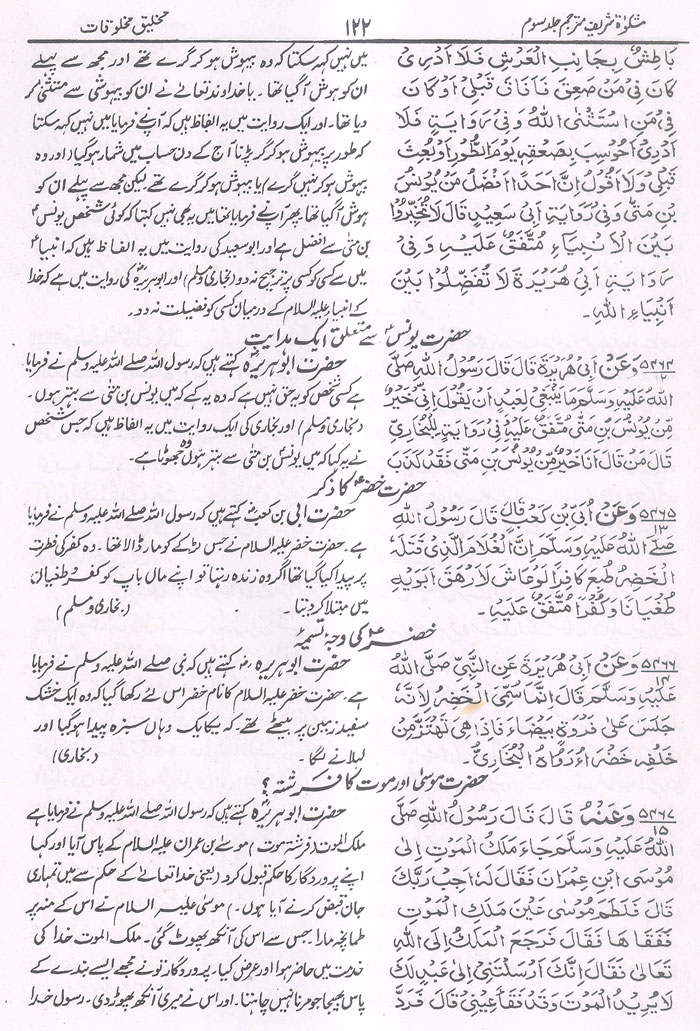 مشکوٰۃ شریف مترجم جلد سوم
۱۲۲
تخلیق مخلوقات
بَاطِشٌ بِجَانِبِ الْعَرْشِ فَلَا اَدْرِیْ
كَانَ فِيْ مَنْ صَعِقَ فَاَفَاقَ قَبْلِيْ اَوْ كَانَ
فِيْ مَنِ اسْتَثْنَى اللهُ وَفِيْ رِوَايَةٍ فَلَا
اَدْرِيْ اَحُوْسِبَ بِصَعْقَةِ يَوْمِ الطُّوْرِ اَوْ بُعِثَ
قَبْلِيْ وَلَا اَقُوْلُ اِنَّ اَحَدًا اَفْضَلُ مِنْ يُوْنُسَ
بْنِ مَتّٰى وَفِيْ رِوَايَةِ اَبِيْ سَعِيْدٍ قَالَ لَا تُخَيِّرُوْا
بَيْنَ الْاَنْبِيَآءِ مُتَّفَقٌ عَلَيْهِ وَفِيْ
رِوَايَةِ اَبِيْ هُرَيْرَةَ لَا تُفَضِّلُوْا بَيْنَ
اَنْبِيَآءِ اللهِ۔
میں نہیں کہہ سکتا کہ وہ بیہوش ہو کر گرے تھے اور مجھ سے پہلے
ان کو ہوش آگیا تھا۔ یا خداوند تعالےٰ نے ان کو بیہوشی سے مستثنیٰ کر
دیا تھا۔ اور ایک روایت میں یہ الفاظ ہیں کہ آپؐ نے فرمایا میں نہیں کہہ سکتا
کہ طور پر بیہوش ہو کر گر پڑنا آج کے دن حساب میں شمار ہوگیا (اور وہ
بیہوش ہو کر نہیں گرے) یا بیہوش ہو کر گرے تھے لیکن مجھ سے پہلے ان کو
ہوش آگیا تھا۔ پھر آپؐ نے فرمایا تھا میں یہ بھی نہیں کہتا کہ کوئی شخص یونسؑ
بن متٰی سے افضل ہے اور ابو سعید کی روایت میں یہ الفاظ ہیں کہ انبیاءؑ
میں سے کسی کو کسی پر ترجیح نہ دو (بخاری ومسلم) اور ابوہریرہؓ کی روایت میں ہے کہ خدا
کے انبیاء علیہ السلام کے درمیان کسی کو فضیلت نہ دو۔
حضرت یونسؑ سے متعلق ایک ہدایت
۵۴۶۴ وَعَنْ اَبِيْ هُرَيْرَةَ قَالَ قَالَ رَسُوْلُ اللهِ صَلَّى
اللهُ عَلَيْهِ وَسَلَّمَ مَا يَنْبَغِيْ لِعَبْدٍ اَنْ يَقُوْلَ اِنِّيْ خَيْرٌ
مِّنْ يُوْنُسَ بْنِ مَتّٰى مُتَّفَقٌ عَلَيْهِ وَفِيْ رِوَايَةٍ لِلْبُخَارِيِّ
قَالَ مَنْ قَالَ اَنَا خَيْرٌ مِّنْ يُوْنُسَ بْنِ مَتّٰى فَقَدْ كَذَبَ
حضرت ابوہریرہؓ کہتے ہیں کہ رسول اللہ صلے اللہ علیہ وسلم نے فرمایا
ہے کسی شخص کو یہ حق نہیں ہے کہ وہ یہ کہے کہ میں یونس بن متٰی سے بہتر ہوں۔
(بخاری ومسلم) اور بخاری کی ایک روایت میں یہ الفاظ ہیں کہ جس شخص
نے یہ کہا کہ میں یونس بن متٰی سے بہتر ہوں وہ جھوٹا ہے۔
حضرت خضرؑ کا ذکر
۵۴۶۵ ۱۳ وَعَنْ اُبَيِّ بْنِ كَعْبٍ قَالَ قَالَ رَسُوْلُ اللهِ
صَلَّى اللهُ عَلَيْهِ وَسَلَّمَ اِنَّ الْغُلَامَ الَّذِيْ قَتَلَهُ
الْخَضِرُ طُبِعَ كَافِرًا وَلَوْ عَاشَ لَاَرْهَقَ اَبَوَيْهِ
طُغْيَانًا وَكُفْرًا مُتَّفَقٌ عَلَيْهِ۔
حضرت ابی بن کعبؓ کہتے ہیں کہ رسول اللہ صلے اللہ علیہ وسلم نے فرمایا
ہے۔ حضرت خضر علیہ السلام نے جس لڑکے کو مار ڈالا تھا۔ وہ کفر کی فطرت
پر پیدا کیا گیا تھا اگر وہ زندہ رہتا تو اپنے ماں باپ کو کفر و طغیان
میں مبتلا کر دیتا۔ (بخاری ومسلم)
خضرؑ کی وجہ تسمیہ
۵۴۶۶ ۱۴ وَعَنْ اَبِيْ هُرَيْرَةَ عَنِ النَّبِيِّ صَلَّى اللهُ
عَلَيْهِ وَسَلَّمَ قَالَ اِنَّمَا سُمِّيَ الْخَضِرُ لِاَنَّهُ
جَلَسَ عَلٰى فَرْوَةٍ بَيْضَآءَ فَاِذَا هِيَ تَهْتَزُّ مِنْ
خَلْفِهٖ خَضْرَآءَ رَوَاهُ الْبُخَارِيُّ۔
حضرت ابوہریرہؓ کہتے ہیں کہ نبی صلے اللہ علیہ وسلم نے فرمایا
ہے۔ حضرت خضر علیہ السلام کا نام خضر اس لئے رکھا گیا کہ وہ ایک خشک
سفید زمین پر بیٹھے تھے کہ یکایک وہاں سبزہ پیدا ہوگیا اور
لہلانے لگا۔ (بخاری)
حضرت موسیٰؑ اور موت کا فرشتہ؟
۵۴۶۷ ۱۵ وَعَنْهُ قَالَ قَالَ رَسُوْلُ اللهِ صَلَّى
اللهُ عَلَيْهِ وَسَلَّمَ جَآءَ مَلَكُ الْمَوْتِ اِلٰى
مُوْسَى ابْنِ عِمْرَانَ فَقَالَ لَهُ اَجِبْ رَبَّكَ
قَالَ فَلَطَمَ مُوْسٰى عَيْنَ مَلَكِ الْمَوْتِ
فَفَقَأَهَا فَقَالَ فَرَجَعَ الْمَلَكُ اِلَى اللهِ
تَعَالٰى فَقَالَ اِنَّكَ اَرْسَلْتَنِيْ اِلٰى عَبْدٍ لَكَ
لَا يُرِيْدُ الْمَوْتَ وَقَدْ فَقَأَ عَيْنِيْ قَالَ فَرَدَّ
حضرت ابوہریرہؓ کہتے ہیں کہ رسول اللہ صلے اللہ علیہ وسلم نے فرمایا ہے
ملک الموت (فرشتہ موت) موسےٰ بن عمران علیہ السلام کے پاس آیا اور کہا
اپنے پروردگار کا حکم قبول کرو (یعنی خدا تعالےٰ کے حکم سے میں تمہاری
جان قبض کرنے آیا ہوں۔) موسٰی علیہ السلام نے اس کے منہ پر
طمانچہ مارا۔ جس سے اس کی آنکھ پھوٹ گئی۔ ملک الموت خدا کی
خدمت میں حاضر ہوا اور عرض کیا۔ پروردگار تو نے مجھے ایسے بندے کے
پاس بھیجا جو مرنا نہیں چاہتا۔ اور اس نے میری آنکھ پھوڑ دی۔ رسول خدا